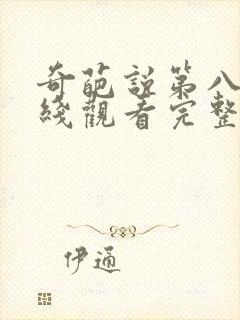 奇葩説第八
綫觀看完整
伊通